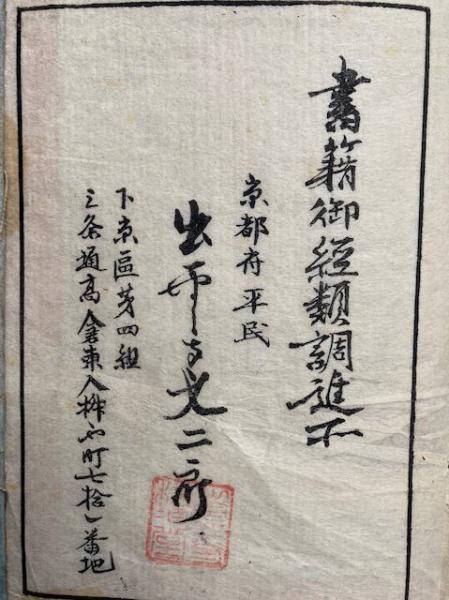 書籍御經類調進所
京都府平民
出雲寺文二郎
下京區第四組
三条通高倉東入桝屋町七拾一番地